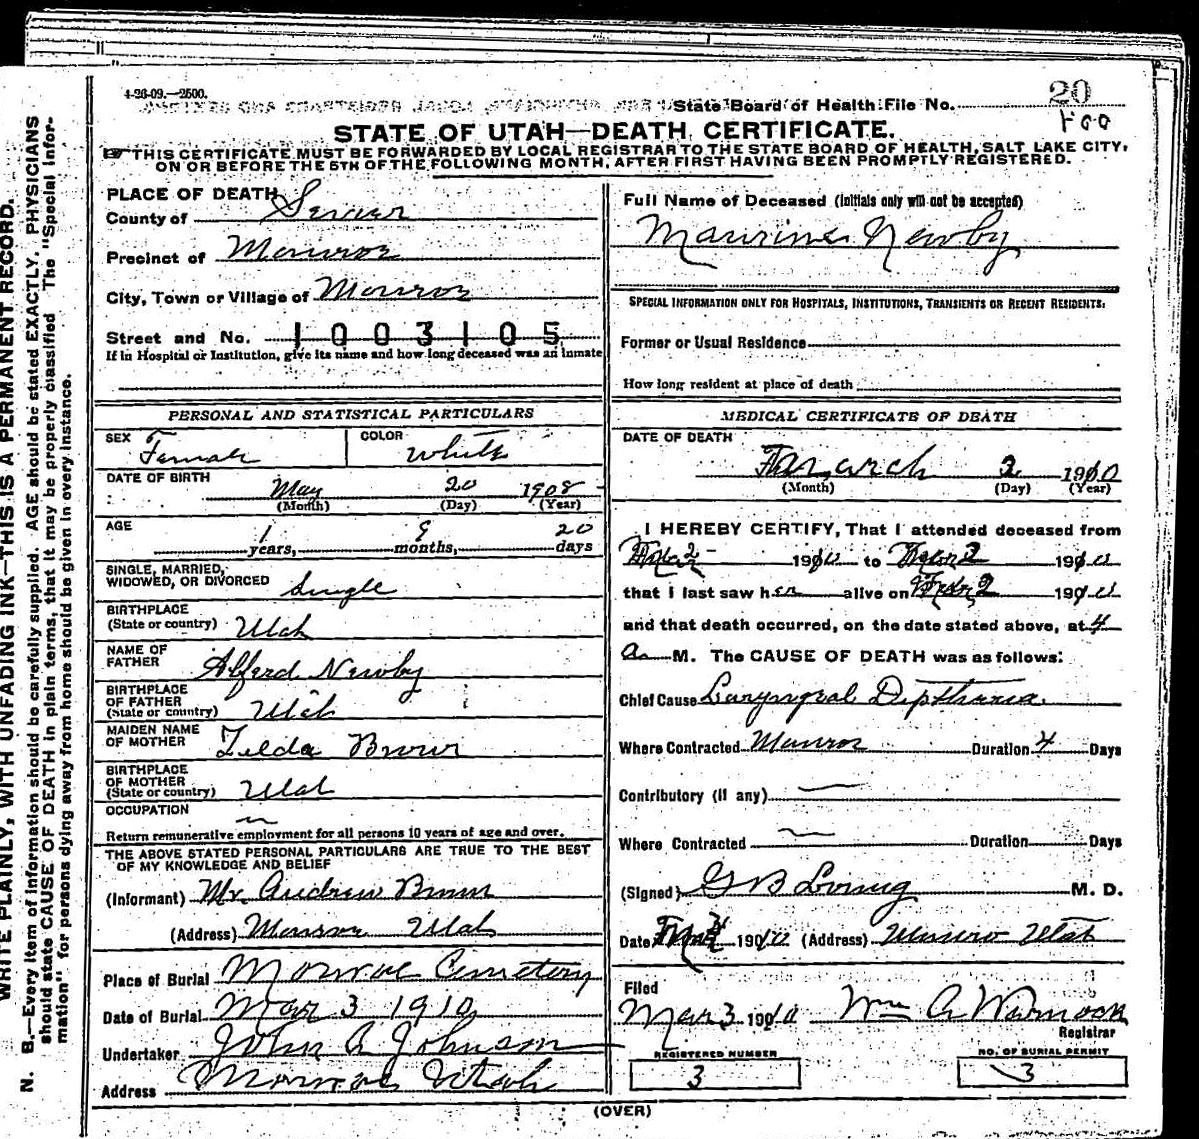 4-26-09.—2500.
State Board of Health File No. 20
STATE OF UTAH—DEATH CERTIFICATE.
THIS CERTIFICATE MUST BE FORWARDED BY LOCAL REGISTRAR TO THE STATE BOARD OF HEALTH, SALT LAKE CITY,
ON OR BEFORE THE 5TH OF THE FOLLOWING MONTH, AFTER FIRST HAVING BEEN PROMPTLY REGISTERED.
PLACE OF DEATH
County of Sevier
Precinct of Monroe
City, Town or Village of Monroe
Street and No. 1003105
If in Hospital or Institution, give its name and how long deceased was an inmate
PERSONAL AND STATISTICAL PARTICULARS
SEX Female COLOR White
DATE OF BIRTH May 20 1908
(Month) (Day) (Year)
AGE 1 years, 9 months, 20 days
SINGLE, MARRIED,
WIDOWED, OR DIVORCED Single
BIRTHPLACE
(State or country) Utah
NAME OF
FATHER Alferd Newby
BIRTHPLACE
OF FATHER
(State or country) Utah
MAIDEN NAME
OF MOTHER Tilda Brown
BIRTHPLACE
OF MOTHER
(State or country) Utah
OCCUPATION
Return remunerative employment for all persons 10 years of age and over.
THE ABOVE STATED PERSONAL PARTICULARS ARE TRUE TO THE BEST
OF MY KNOWLEDGE AND BELIEF
(Informant) Mr. Andrew Brown
(Address) Monroe Utah
Place of Burial Monroe Cemetery
Date of Burial Mar 3 1910
Undertaker John A Johnson
Address Monroe Utah
Full Name of Deceased (Initials only will not be accepted)
Maurine Newby
SPECIAL INFORMATION ONLY FOR HOSPITALS, INSTITUTIONS, TRANSIENTS OR RECENT RESIDENTS:
Former or Usual Residence
How long resident at place of death
MEDICAL CERTIFICATE OF DEATH
DATE OF DEATH
March 2 1910
(Month) (Day) (Year)
I HEREBY CERTIFY, That I attended deceased from
2 1910 to 2 1910
that I last saw her alive on 2 1910
and that death occurred, on the date stated above, at 4
a M. The CAUSE OF DEATH was as follows:
Chief Cause Laryngeal Diptheria
Where Contracted Monroe Duration 4 Days
Contributory (if any)
Where Contracted Duration Days
(Signed) G B Loring M. D.
Date 1910 (Address) Monroe Utah
Filed
Mar 3 1910 Wm A Warnock
Registrar
REGISTERED NUMBER
3
NO. OF BURIAL PERMIT
3
(OVER)
WRITE PLAINLY, WITH UNFADING INK—THIS IS A PERMANENT RECORD.
N. B.—Every item of information should be carefully supplied. AGE should be stated EXACTLY. PHYSICIANS
should state CAUSE OF DEATH in plain terms, that it may be properly classified The "Special Infor-
mation" for persons dying away from home should be given in every instance.